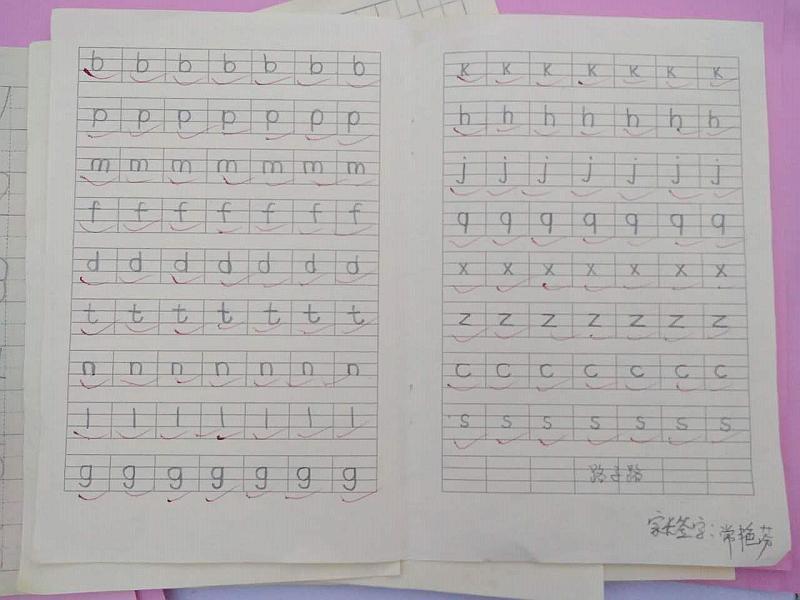 b b b b b b b
p p p p p p p
m m m m m m m
f f f f f f f
d d d d d d d
t t t t t t t
n n n n n n n
l l l l l l l
g g g g g g g
k k k k k k k
h h h h h h h
j j j j j j j
q q q q q q q
x x x x x x x
z z z z z z z
c c c c c c c
s s s s s s s
路子路
家长签字：常艳芳